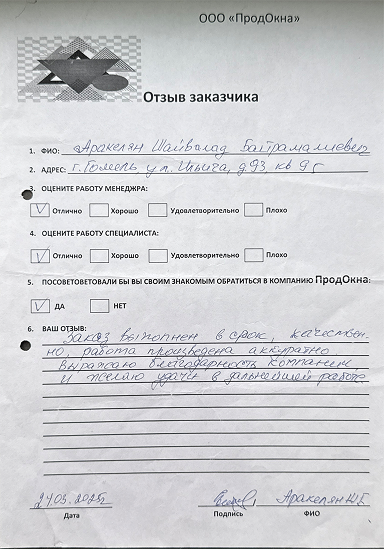 ООО «ПродОкна»
Отзыв заказчика
1. ФИО: Аракелян Шайвалад Байрамалиевич
2. АДРЕС: г. Гомель ул. Ильича, д. 93, кв 95
3. ОЦЕНИТЕ РАБОТУ МЕНЕДЖРА:
Отлично Хорошо Удовлетворительно Плохо
4. ОЦЕНИТЕ РАБОТУ СПЕЦИАЛИСТА:
Отлично Хорошо Удовлетворительно Плохо
5. ПОСОВЕТОВЕТОВАЛИ БЫ ВЫ СВОИМ ЗНАКОМЫМ ОБРАТИТЬСЯ В КОМПАНИЮ ПродОкна:
ДА НЕТ
6. ВАШ ОТЗЫВ:
Заказ выполнен в срок, качествен-
но, работа произведена аккуратно
Выражаю благодарность компании
и желаю удачи в дальнейшей работе
24.03.2025г Аракелян Ш.Б
Дата Подпись ФИО